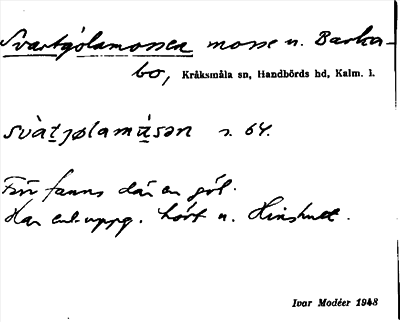 Svartgölamossen mosse n. Barke-
bo, Kråksmåla sn, Handbörds hd, Kalm. l.
svàt̠jølamåsən s. 64.
Förr fanns där en göl.
Har enl. uppg. hört u.
Ivar Modéer 1948